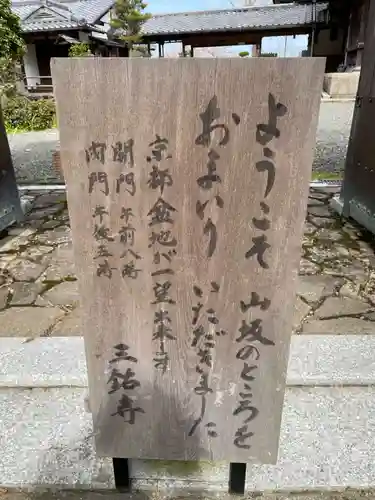 ようこそ山坂のところを
おまいりいただきました
京都盆地が一望出来ます
開門 午前八時
閉門 午後五時
三鈷寺